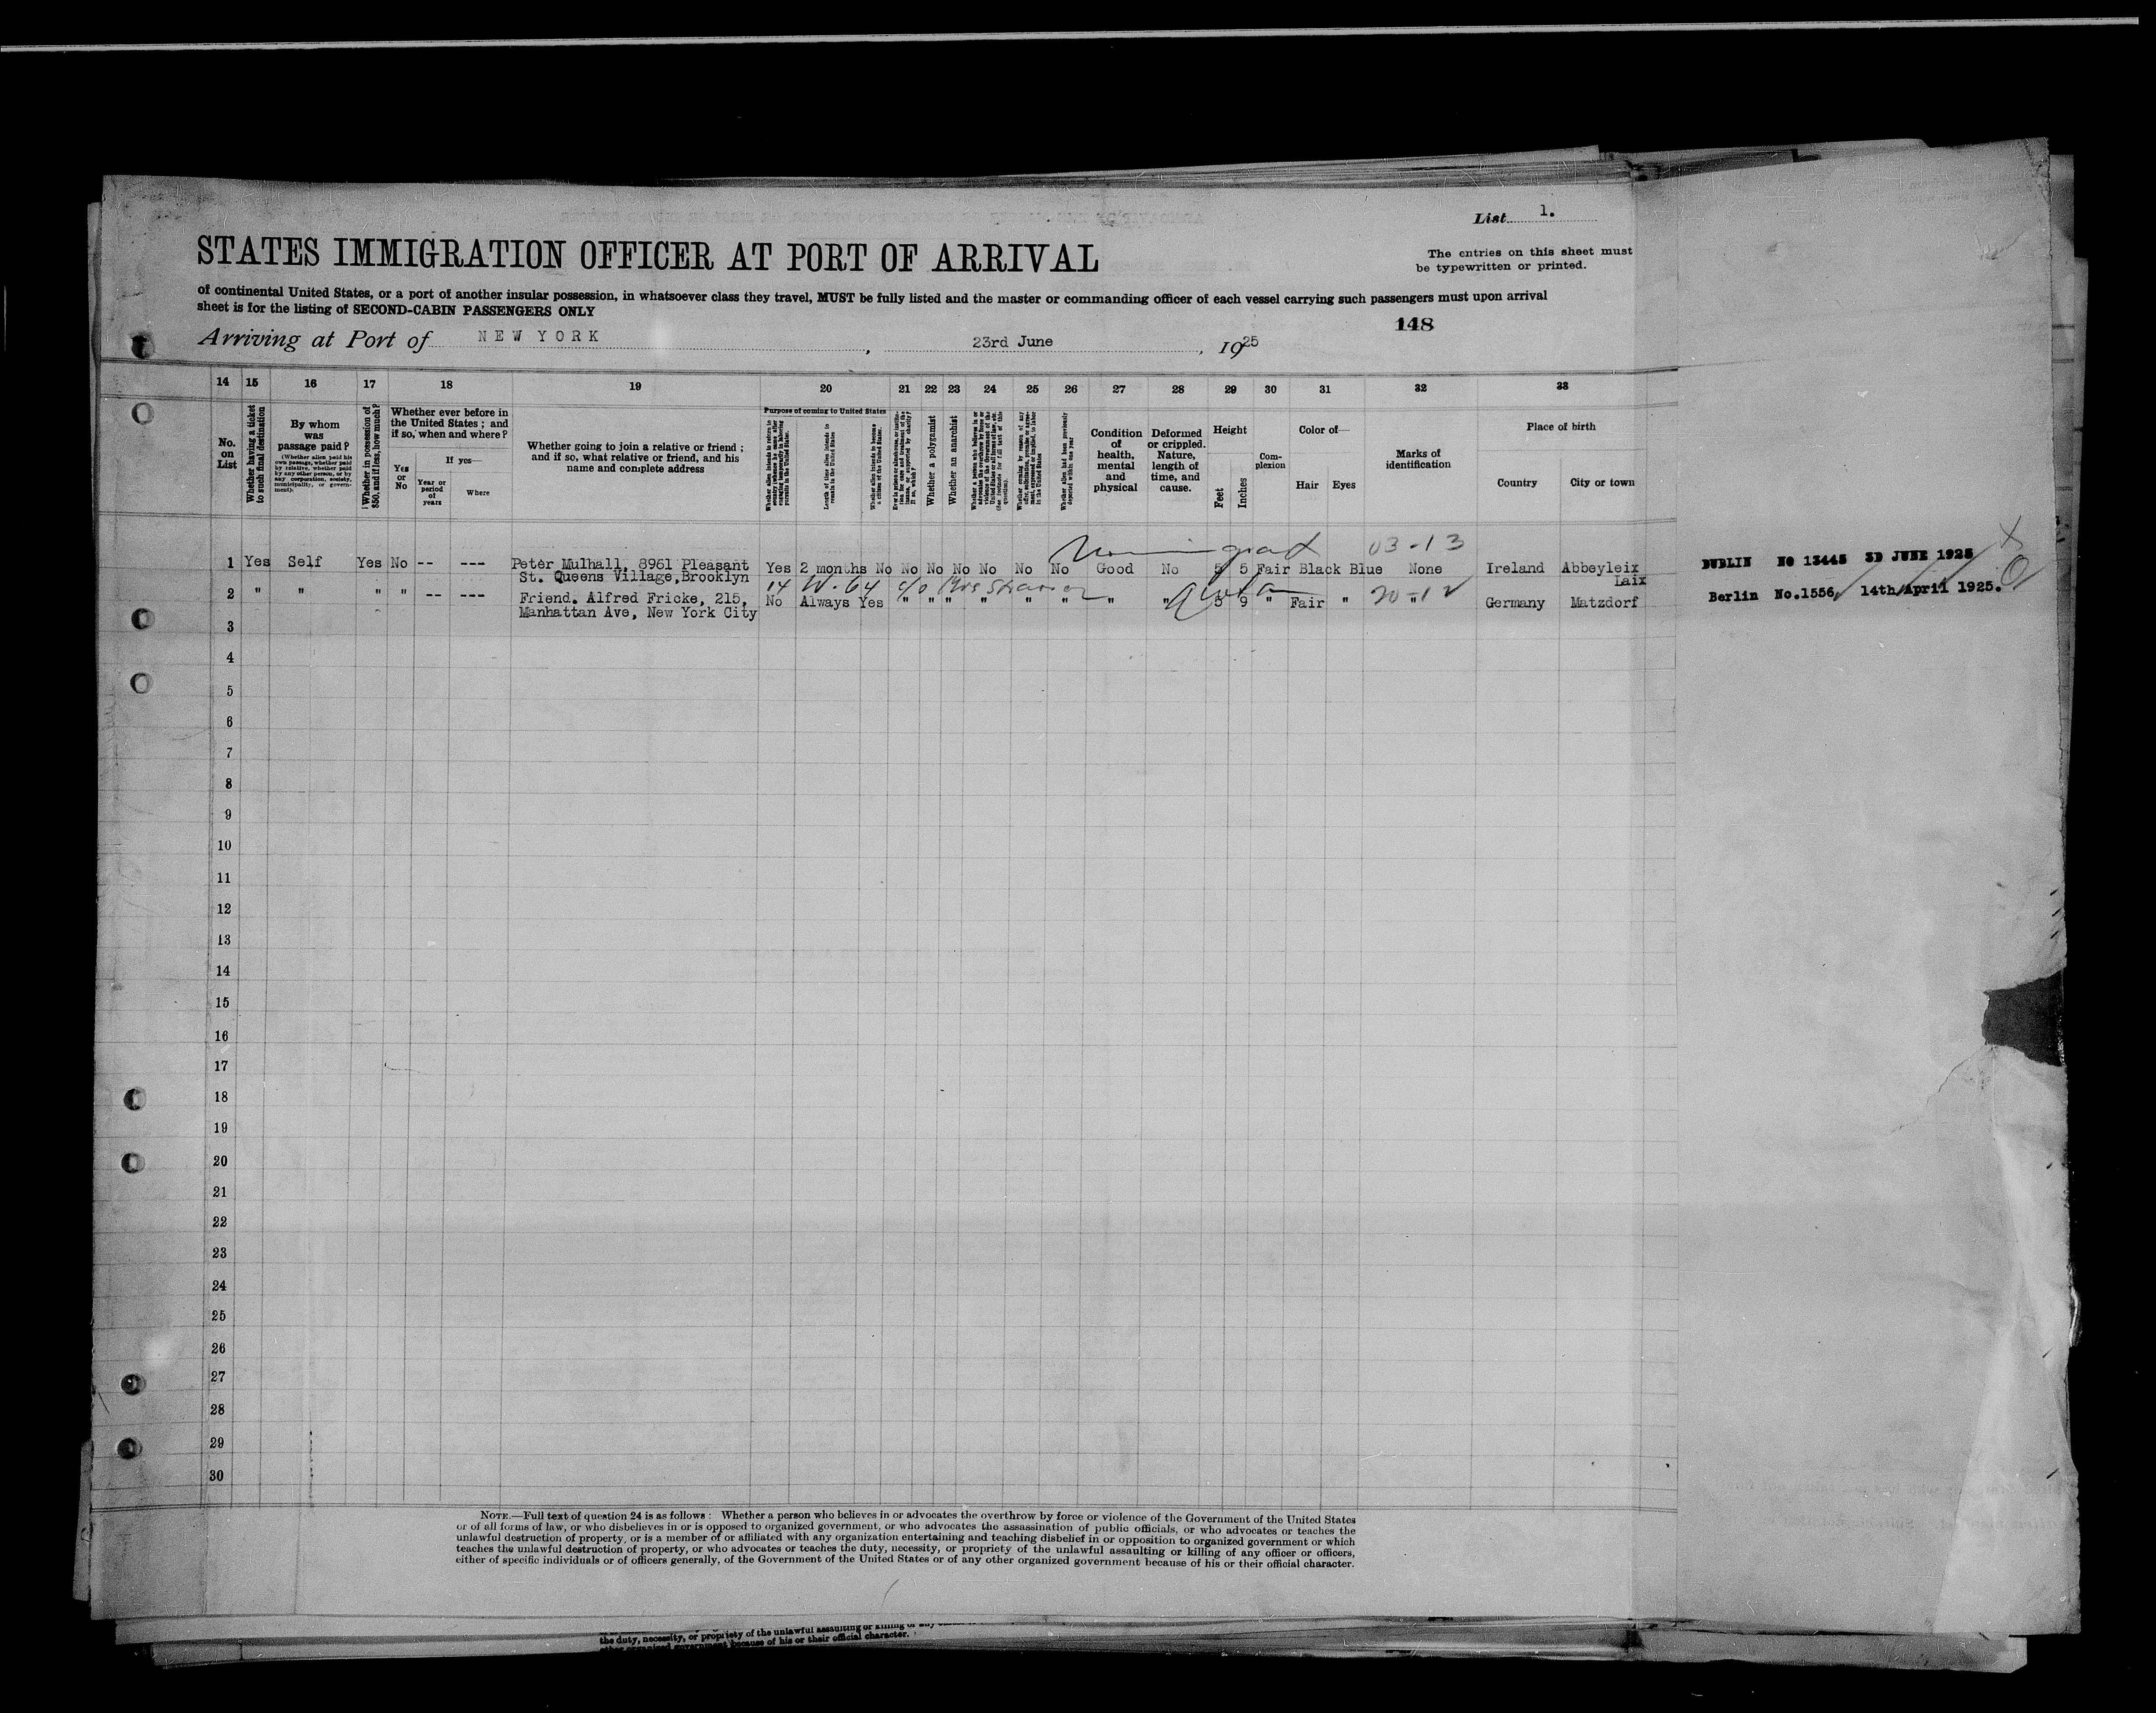 List 1.
STATES IMMIGRATION OFFICER AT PORT OF ARRIVAL
The entries on this sheet must
be typewritten or printed.
of continental United States, or a port of another insular possession, in whatsoever class they travel, MUST be fully listed and the master or commanding officer of each vessel carrying such passengers must upon arrival
sheet is for the listing of SECOND-CABIN PASSENGERS ONLY
148
Arriving at Port of NEW YORK, 23rd June, 1925
14 15 16 17 18 19 20 21 22 23 24 25 26 27 28 29 30 31 32 33
No. on List
Whether having a ticket to such final destination
By whom was passage paid?
(Whether alien paid his own passage, whether paid by relative, whether paid by any other person, or by any corporation, society, municipality, or government).
Whether in possession of $50, and if less, how much?
Whether ever before in the United States; and if so, when and where?
Yes or No
If yes—
Year or period of years
Where
Whether going to join a relative or friend; and if so, what relative or friend, and his name and complete address
Purpose of coming to United States
Length of time alien intends to remain in the United States
Whether alien intends to become a citizen of the United States
Whether a polygamist
Whether an anarchist
Whether alien had been previously deported within one year
Condition of health, mental and physical
Deformed or crippled. Nature, length of time, and cause.
Height
Feet
Inches
Complexion
Color of—
Hair
Eyes
Marks of identification
Place of birth
Country
City or town
03-13
1 Yes Self Yes No -- --- Peter Mulhall, 8961 Pleasant Yes 2 months No No No No No No No Good No 5 5 Fair Black Blue None Ireland Abbeyleix DUBLIN No 13445 3D JUNE 1925
St. Queens Village, Brooklyn Laix
14 W. 64 c/o Mrs
2 " " " " -- --- Friend. Alfred Fricke, 215, No Always Yes " " " " " " " " 5 9 " Fair " " Germany Matzdorf Berlin No.1556 14th April 1925.
20-12
Manhattan Ave, New York City
3
4
5
6
7
8
9
10
11
12
13
14
15
16
17
18
19
20
21
22
23
24
25
26
27
28
29
30
NOTE.—Full text of question 24 is as follows: Whether a person who believes in or advocates the overthrow by force or violence of the Government of the United States
or of all forms of law, or who disbelieves in or is opposed to organized government, or who advocates the assassination of public officials, or who advocates or teaches the
unlawful destruction of property, or is a member of or affiliated with any organization entertaining and teaching disbelief in or opposition to organized government or which
teaches the unlawful destruction of property, or who advocates or teaches the duty, necessity, or propriety of the unlawful assaulting or killing of any officer or officers,
either of specific individuals or of officers generally, of the Government of the United States or of any other organized government because of his or their official character.
the duty, necessity, or propriety of the unlawful assaulting or killing of any
other organized government because of his or their official character.